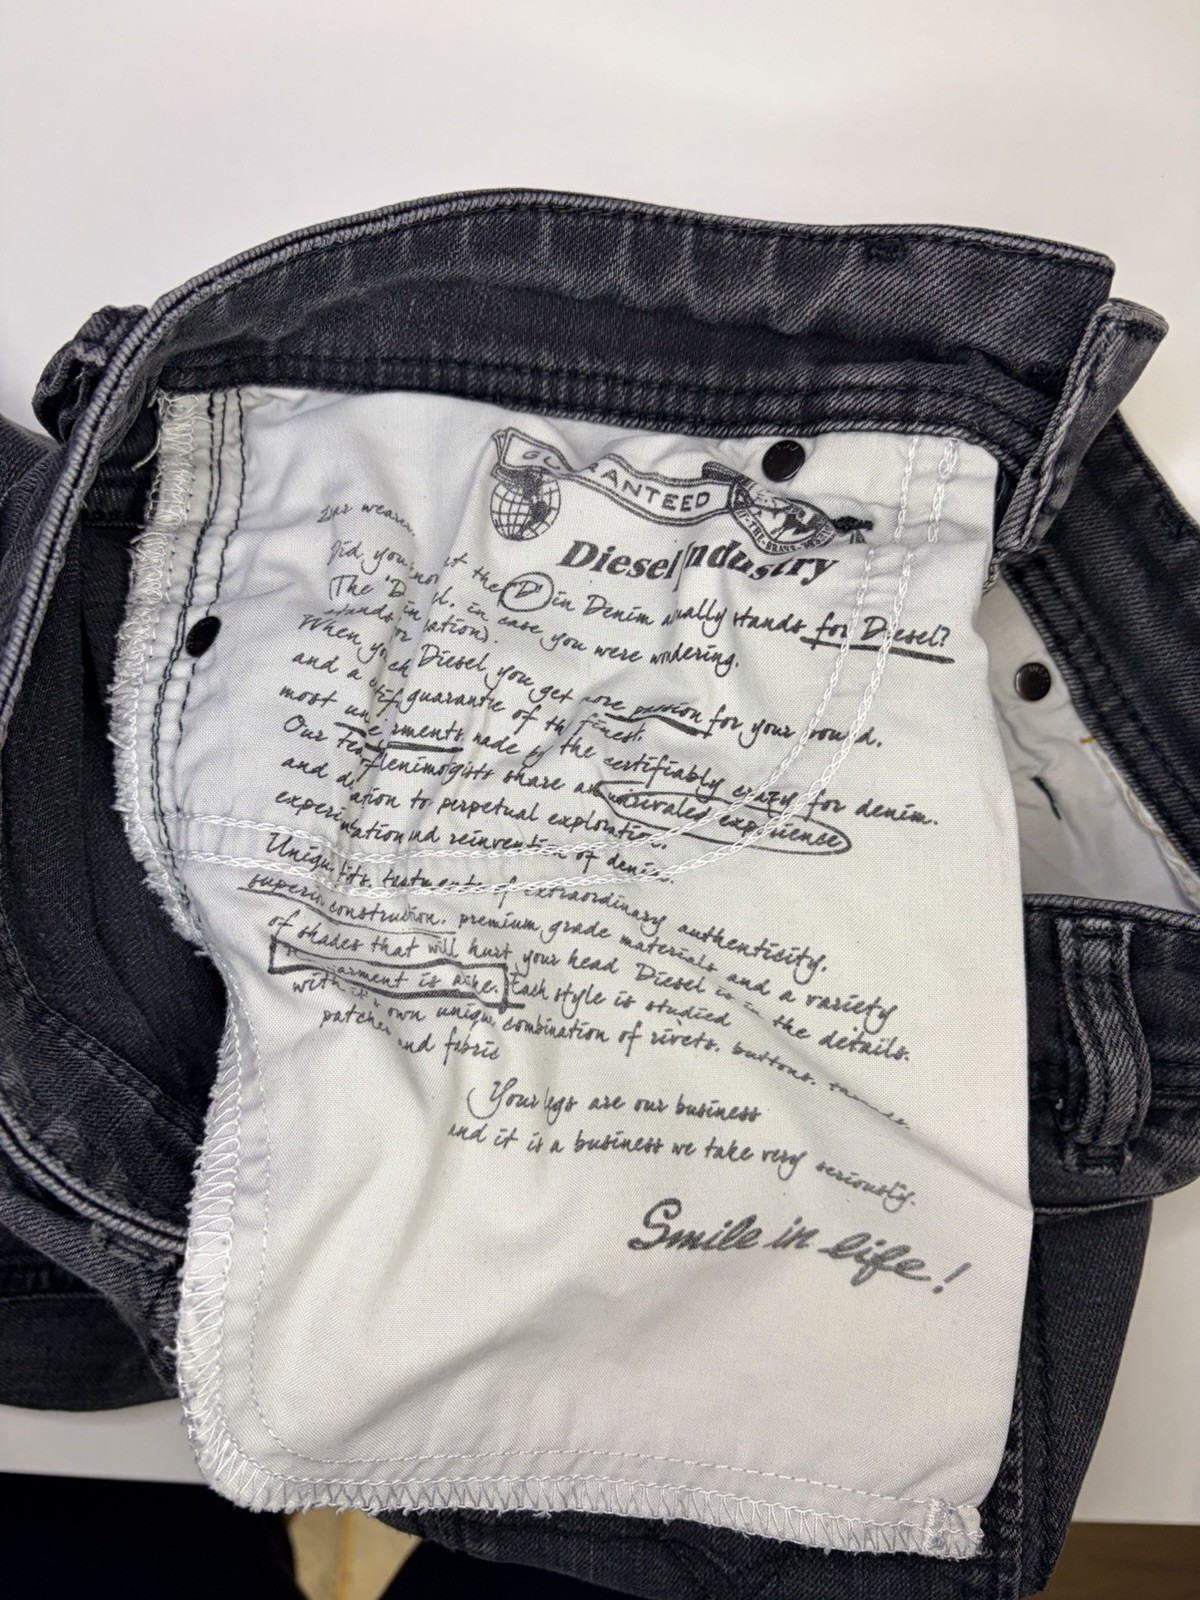 GUARANTEED
ONLY-THE-BRAVE
Diesel Industry
Did you t the 'D' in Denim ually stands for Diesel?
The 'D l, in case you were wondering.
stands in ation).
When yo Diesel you get more passion for your pound.
and a guarantee of the finest.
most un rments made by the certifiably crazy for denim.
Our Tea denimologists share an unrivaled experience
and d ation to perpetual exploration,
experi tation nd reinvention of denim.
Unique fits, treatments of extraordinary authenticity,
superi construction, premium grade materials and a variety
of shades that will hurt your head Diesel is in the details.
arment is alike. Each style is studied
with it's own unique combination of rivets, buttons,
patches and fabric
Your legs are our business
and it is a business we take very seriously.
Smile in life!